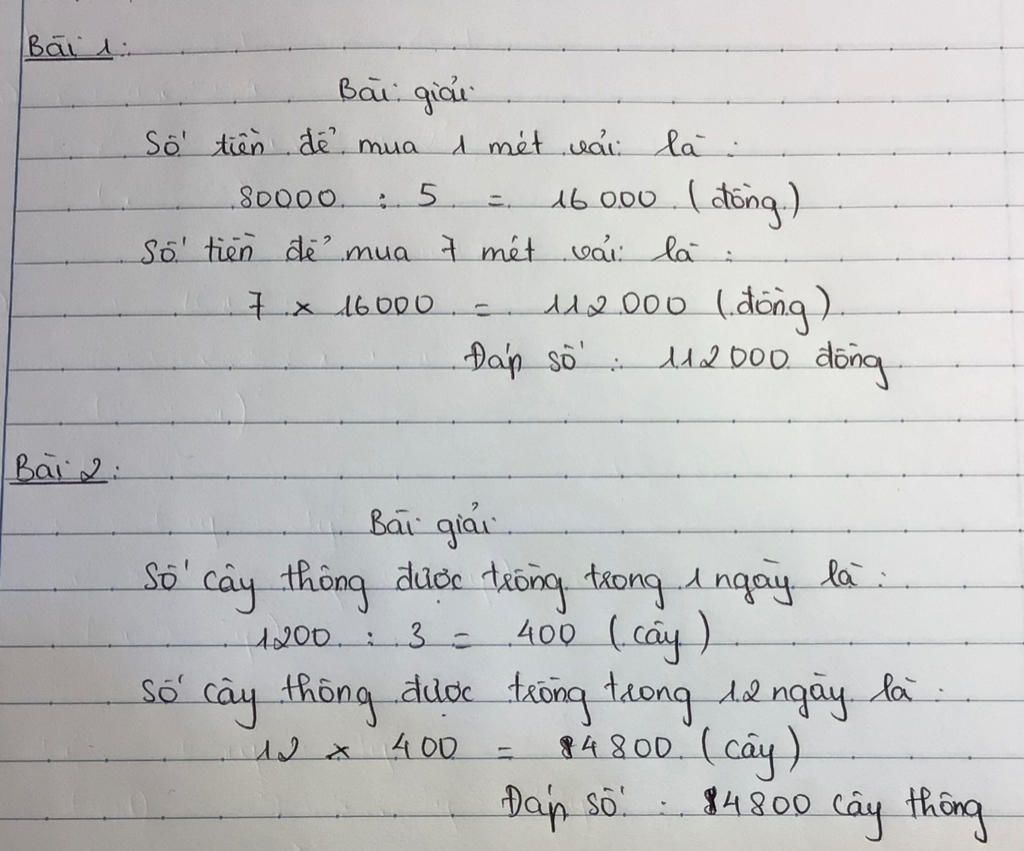 Bài 1:
Bài giải
Số tiền để mua 1 mét vải là :
80000 : 5 = 16000 (đồng)
Số tiền để mua 7 mét vải là :
7 × 16000 = 112000 (đồng)
Đáp số : 112000 đồng
Bài 2:
Bài giải
Số cây thông được trồng trong 1 ngày là :
1200 : 3 = 400 (cây)
Số cây thông được trồng trong 12 ngày là :
12 × 400 = 4800 (cây)
Đáp số : 4800 cây thông